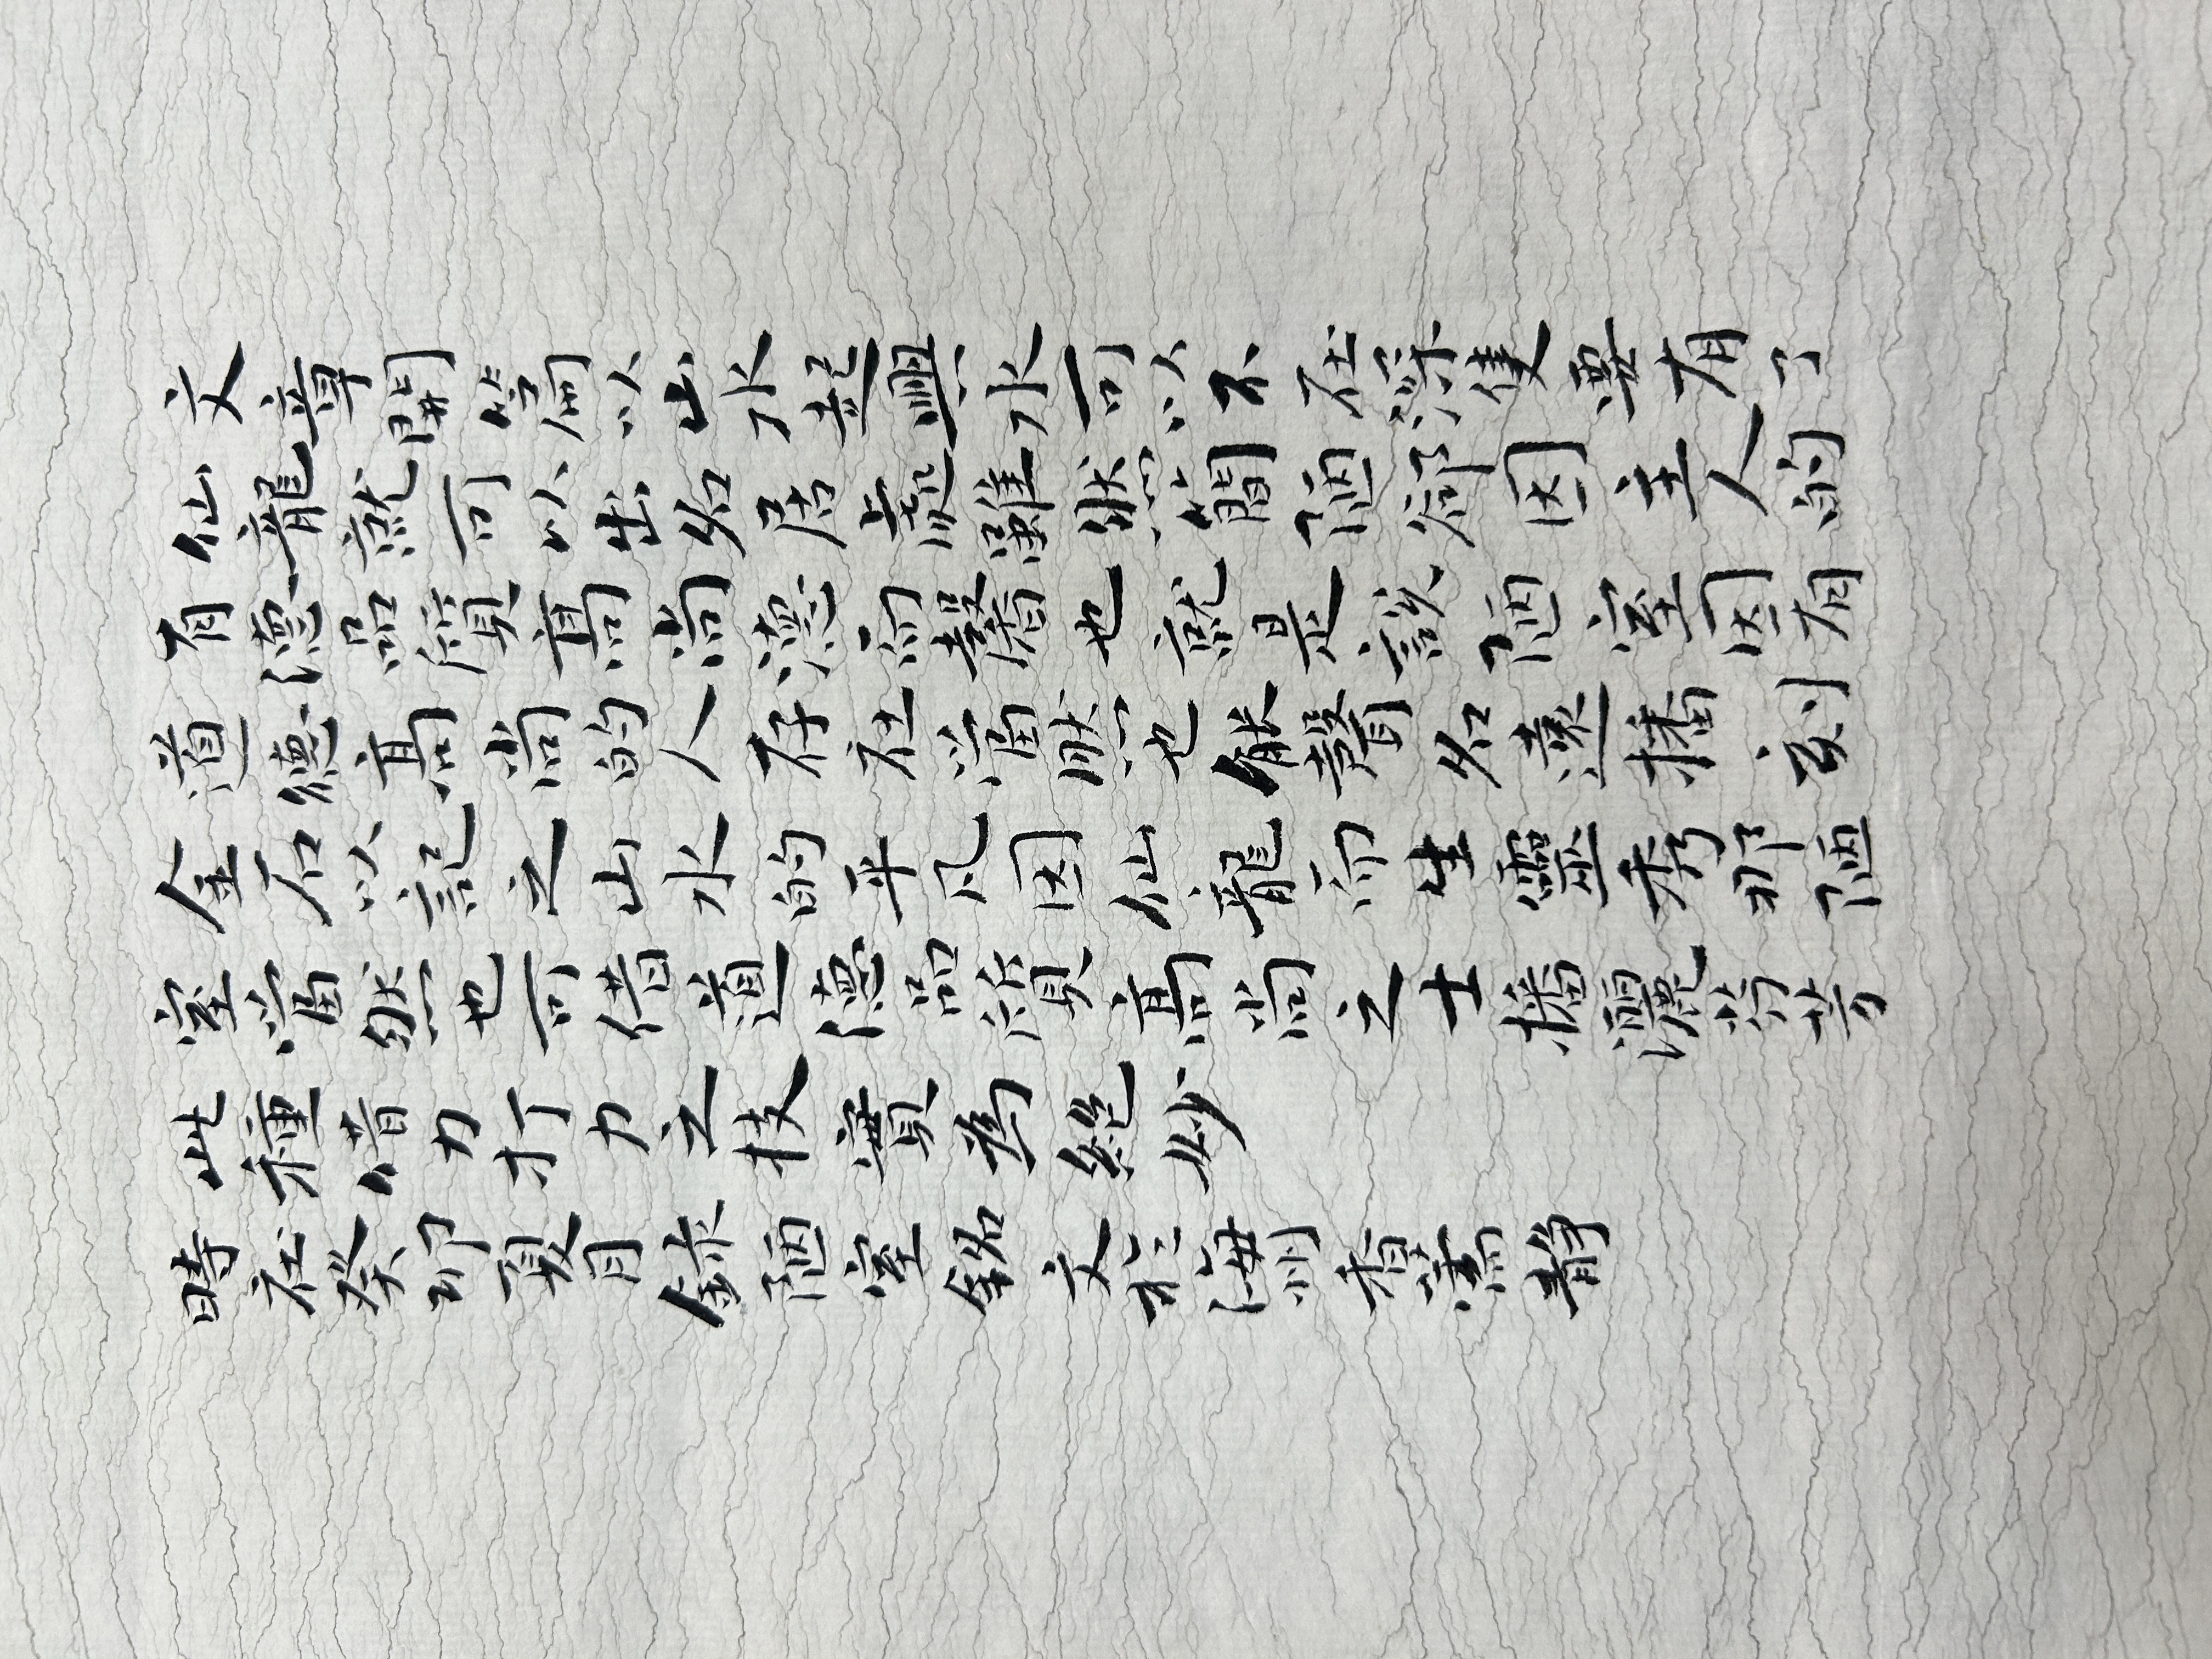 文章開篇以山水起興水可以不在深隻要有了
仙龍就可以出名居處雖然簡陋卻因主人的
有德品質高尚德而馨也就是説陋室因有
道德高尚的人存在當然也能聲名遠播刻
金石以記之山水的平凡因仙龍而生靈秀那陋
室當然也可借道德品質高尚之士播灑芬芳
此種借力打力之技實為絕妙
時在癸卯夏月録陋室銘文於海州香薷静